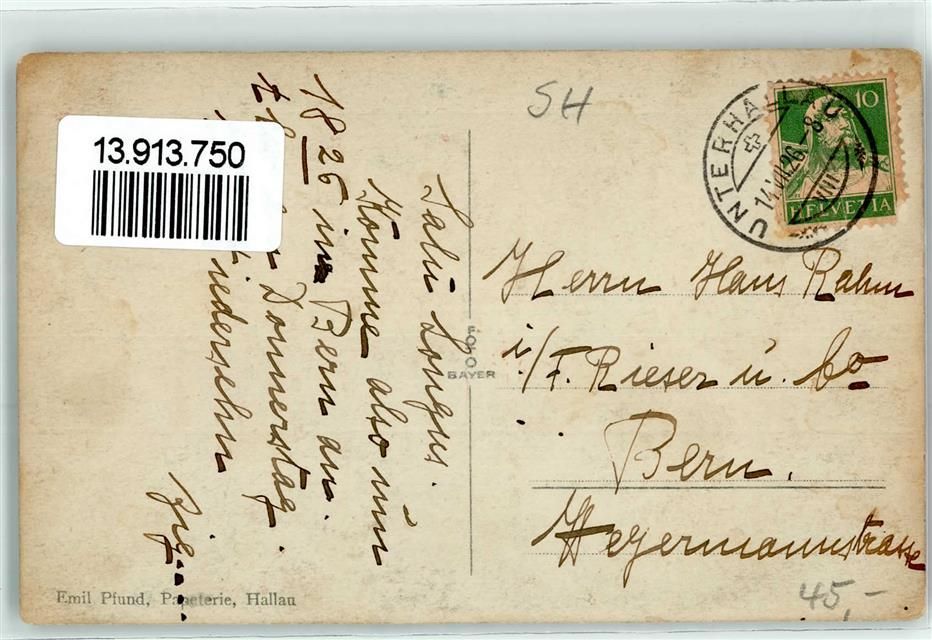 13.913.750
SH
UNTERHALLAU
14.VII.26.-8
VIII
10
HELVETIA
Salü Longus.
Komme also um
18 26 in Bern an.
Donnerstag.
iedersehn
FOTO
BAYER
Herrn Hans Rahm
i/F. Rieser u. Co
Bern.
Wegermannstrasse
Emil Pfund, Papeterie, Hallau
45,-